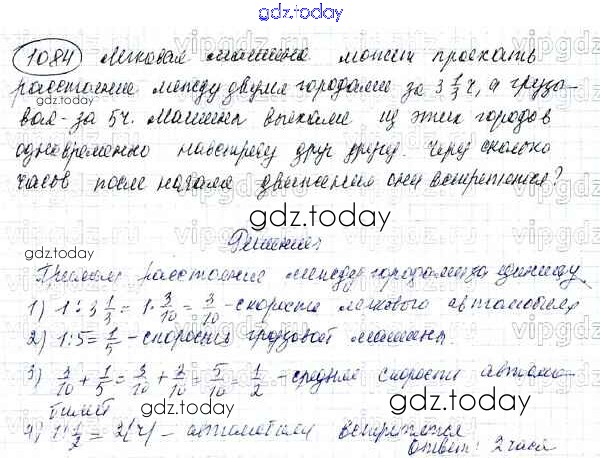 gdz.today
1084 Легковая машина может проехать
расстояние между двумя городами за 3 1/3 ч, а грузо-
вая - за 5ч. Машины выехали из этих городов
одновременно навстречу друг другу. Через сколько
часов после начала движения они встретятся?
gdz.today
Решение:
Примем расстояние между городами за единицу
1) 1 : 3 1/3 = 1 · 3/10 = 3/10 - скорость легкового автомобиля
2) 1:5 = 1/5 - скорость грузовой машины.
3) 3/10 + 1/5 = 3/10 + 2/10 = 5/10 = 1/2 - средняя скорость автомо-
билей
4) 1 : 1/2 = 2(ч) - автомобили встретятся
Ответ: 2 часа